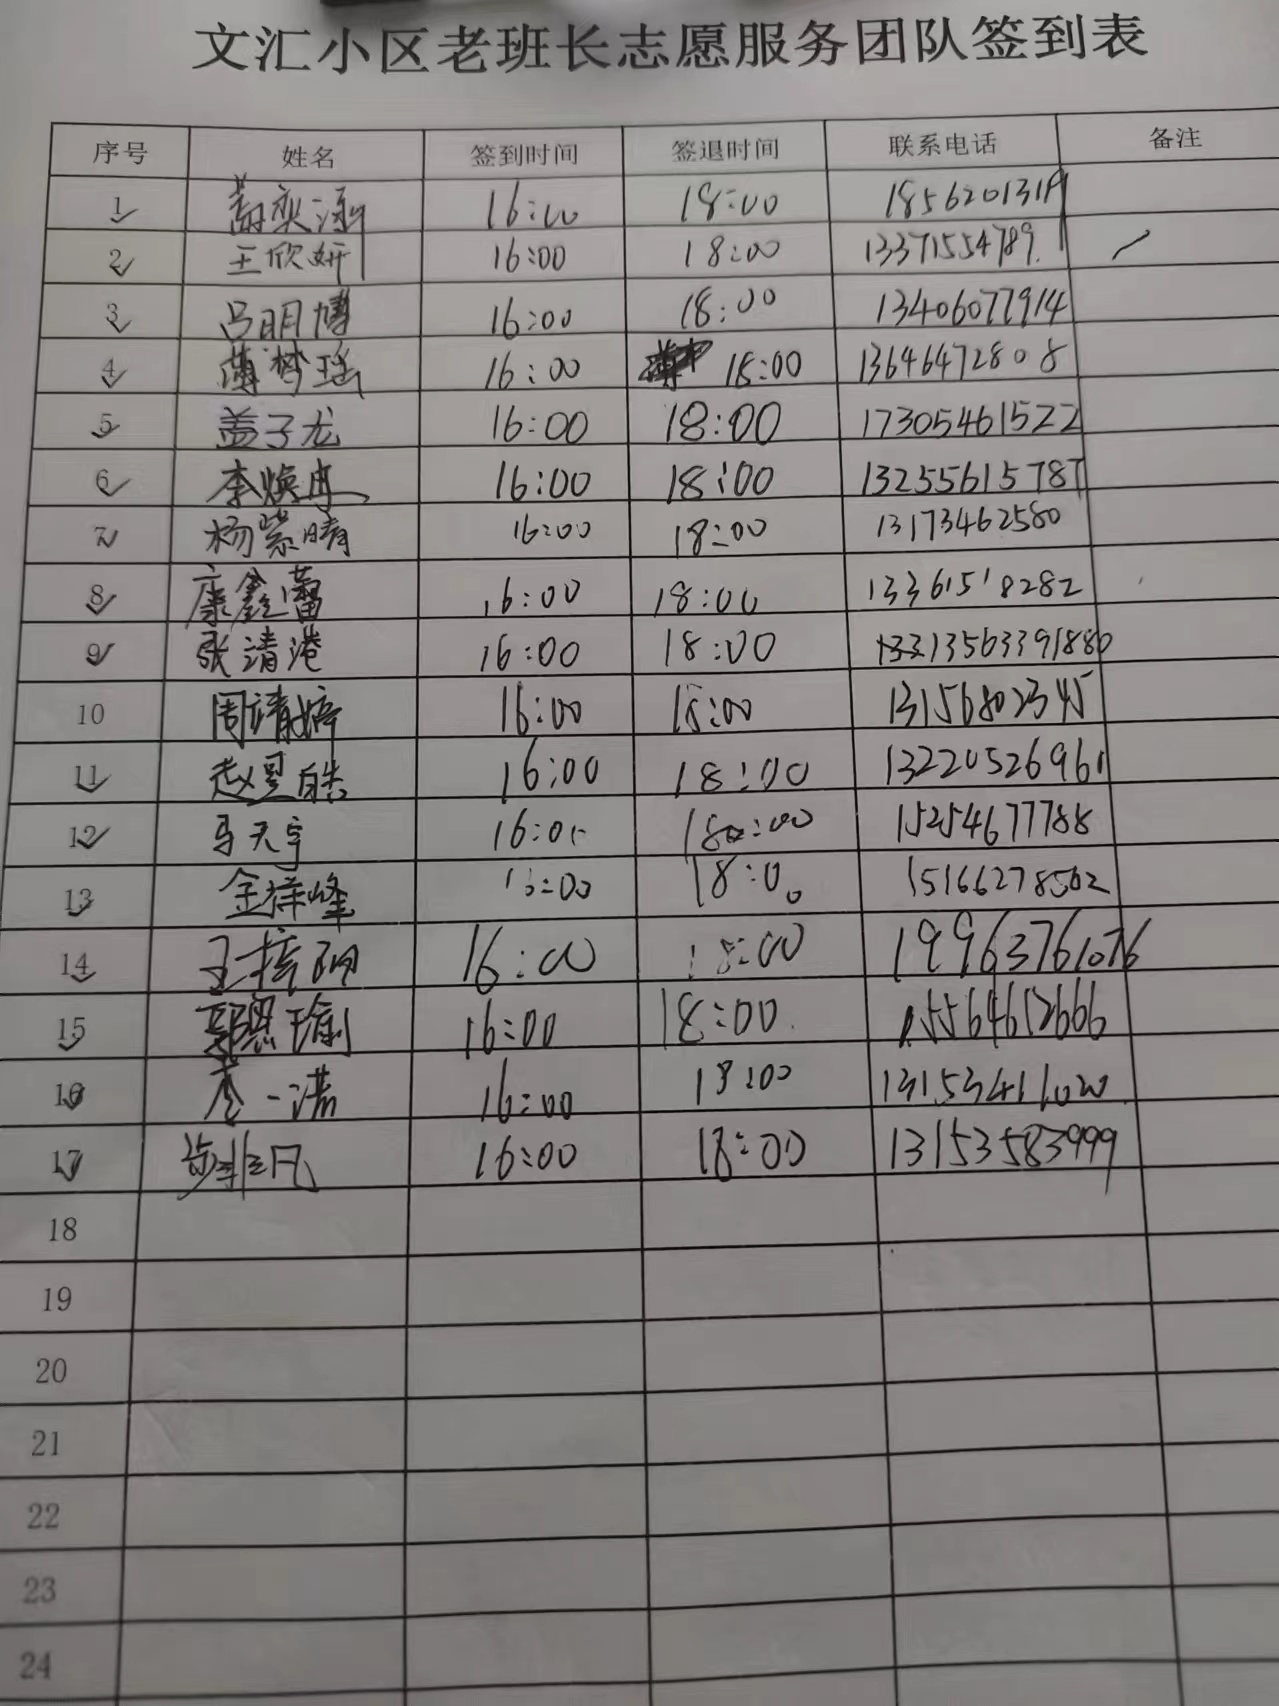 文汇小区老班长志愿服务团队签到表
序号 姓名 签到时间 签退时间 联系电话 备注
1 16:00 18:00
2 王欣妍 16:00 18:00 13371554789
3 吕明博 16:00 18:00 13406077914
4 薄梦瑶 16:00 18:00 13646472808
5 盖子龙 16:00 18:00 17305461522
6 李焕冉 16:00 18:00 13255615787
7 杨紫晴 16:00 18:00 13173462580
8 康鑫蕾 16:00 18:00 13361518282
9 张清港 16:00 18:00
10 周靖婷 16:00 18:00 13156802345
11 赵昱皓 16:00 18:00 13220526961
12 马天宇 16:00 18:00 15254677788
13 金祥峰 16:00 18:00 15166278502
14 16:00 18:00 19963761076
15 郭恩瑜 16:00 18:00 15564612666
16 一诺 16:00 18:00
17 步非凡 16:00 18:00 13153583999
18
19
20
21
22
23
24